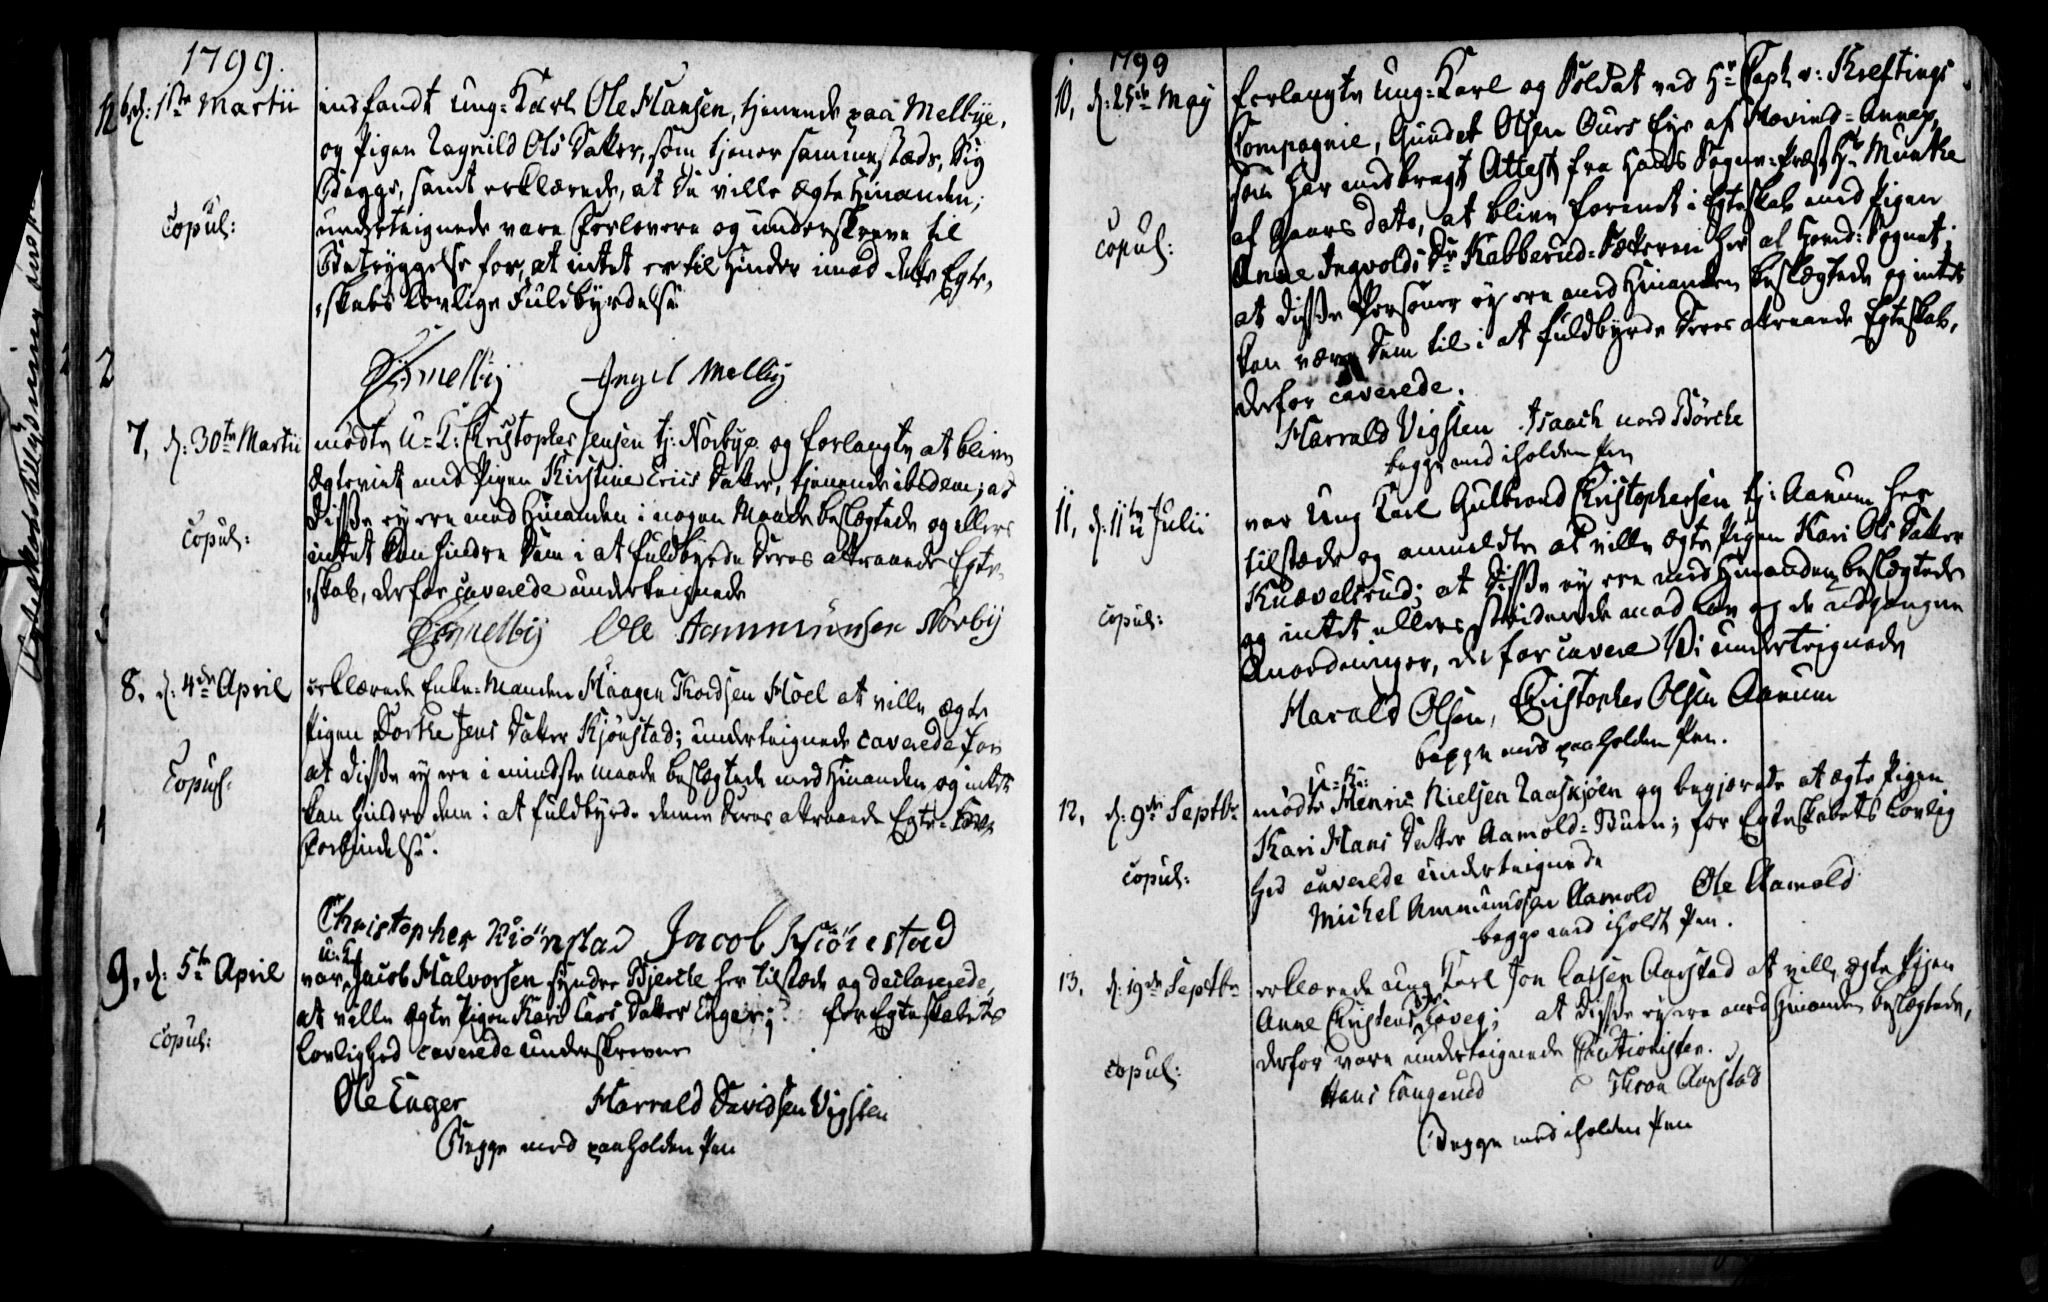 1799.
6, d: 1ste Martii
indfandt Ung-Karl Ole Hansen, tjenende paa Melbye,
og Pigen Ragnild Ols Datter, som tjener sammestæds, Sig
Begge, samt erklærede, at De ville ægte Hinanden;
Copul:
undertegnede vare Forlovere og underskreve til
Betryggelse for, at intet er til Hinder imod dette Egte-
skabs lovlige Fuldbyrdelse
Melbÿ Engel Melbÿ
7, d: 30te Martii
mødte U-K: Christopher Jensen tj: Norbye og forlangte at blive
ægteviet med Pigen Kirstine Erics Datter, tjenende ibidem; at
Disse ey ere med Hinanden i nogen Maade beslægtede og ellers
Copul:
intet kan hindre Dem i at fuldbyrde Deres attraaende Egte-
skab, derfor caverede undertegnede
Melbÿ Ole Hammunsen Norbÿ
8, d: 4de April
erklærede Enke-Manden Haagen Thordsen Hoel at ville ægte
Pigen Dorthe Jens Datter Kjönstad; undertegnede caverede for
at Disse ey ere i mindste maade beslægtede med Hinanden og intet
Copul:
kan hindre dem i at fuldbyrde denne Deres attraaende Egte-
Forbindelse.
Christopher Kiönstad Jacob Kiönestad
9, d: 5te April
U:K:
var Jacob Halvorsen Hyndre Bjercke her tilstæde og declarerede,
at ville ægte Pigen Kari Lars Datter Enger; for Egteskabets
Copul:
Lovlighed caverede underskrevne
Ole Enger Harrald Davidsen Vigsten
Begge med paaholden Pen
1799
10, d: 25de May
forlangte Ung-Karl og Soldat ved Hr Capt. v: Kreftings
Compagnie, Gundet Olsen Ours Eye af Hovind-Annex,
som har medbragt Attest fra Hans Sogne-Præst Hr Munthe
af Gaars dato, at blive forenet i Egteskab med Pigen
Copul:
Anne Ingvolds Dr Kabberud-Sækeren her af Hoved-Sognet;
at disse Personer ey ere med Hinanden beslægtede og intet
kan være Dem til i at fuldbyrde Deres attraaende Egteskab,
derfor caverede.
Harrald Vigsten Isaach nord Börcke
begge med iholden Pen
11, d: 11te Julii
var Ung Karl Gulbrand Christophersen tj: Aanum her
tilstæde og anmeldte at ville ægte Pigen Kari Ols Datter
Knævelsrud; at Disse ey ere med Hinanden beslægtede
Copul:
og intet ellers stridende mod Lov og de udgangne
Anordninger, derfor cavere Vi undertegnede
Harald Olsen, Christopher Olsen Aanum
begge med paaholden Pen.
12, d: 9de Septbr
U-K:
mødte Henric Nielsen Raaskjøen og begjærede at ægte Pigen
Kari Hans Datter Aamold-Buen; for Egteskabets Lovlig
Copul:
hed caverede undertegnede
Michel Ammundsen Aamold Ole Aamold
begge med iholdt Pen.
13, d: 19de Septbr
erklærede Ung Karl Jon Larsen Aarstad at ville ægte Pigen
Anne Christens Dr; at disse ey ere med Hinanden beslægtede,
Copul:
derfor vare undertegnede Cautionister.
Hans Langerud Thron Aarstad
Begge med iholden Pen